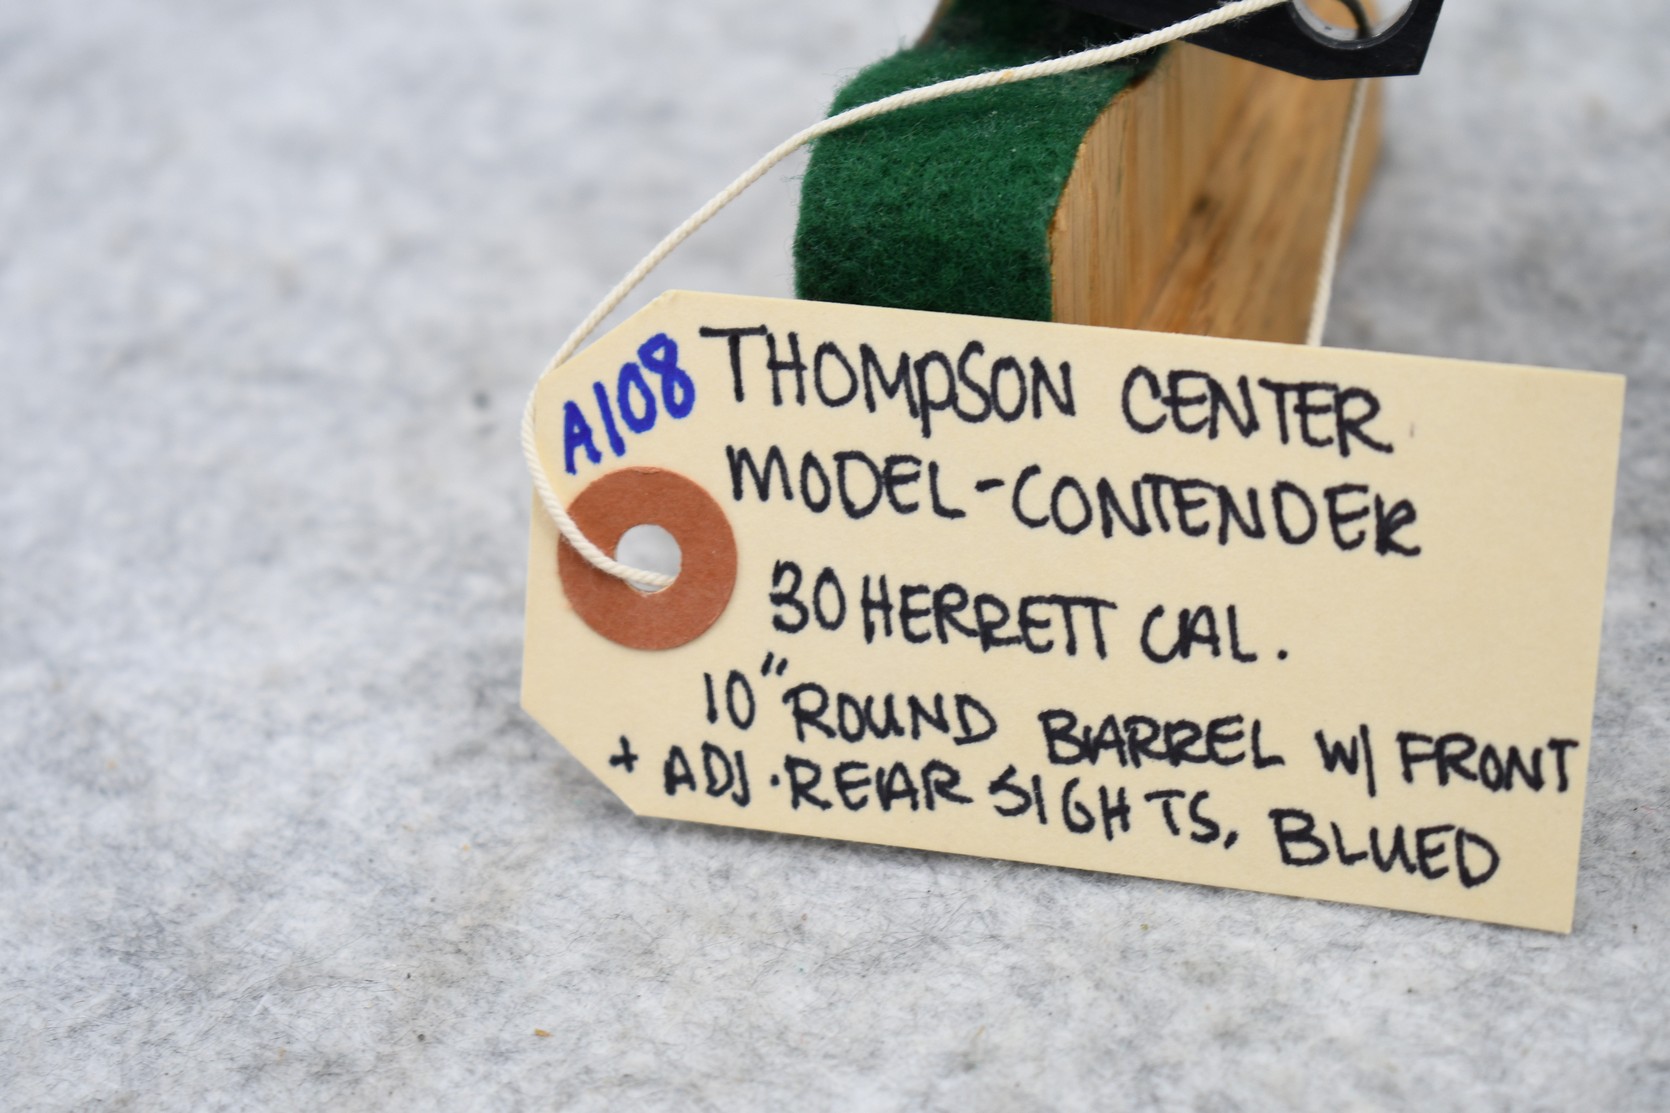 A108
THOMPSON CENTER
MODEL-CONTENDER
30 HERRETT CAL.
10" ROUND BARREL W/ FRONT
+ ADJ. REAR SIGHTS, BLUED